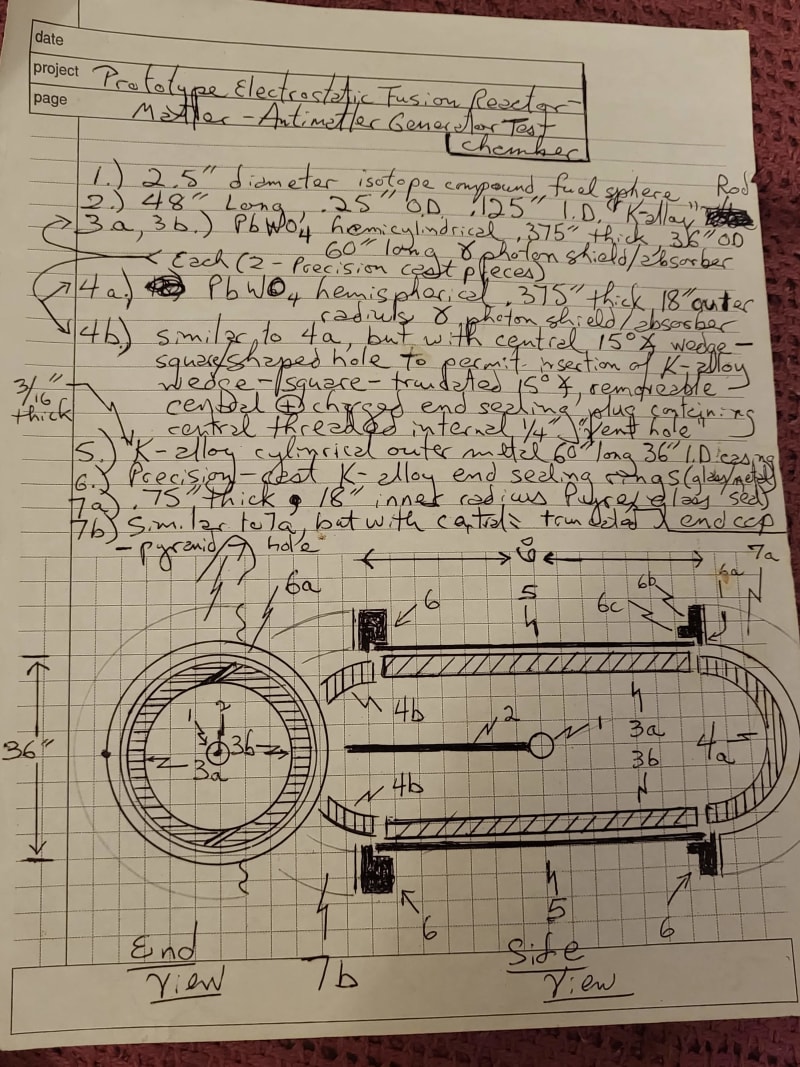 date
project Prototype Electrostatic Fusion Reactor-
page Matter-Antimatter Generator Test
chamber
1.) 2.5" diameter isotope compound fuel sphere
2.) 48" Long, .25" O.D. .125" I.D. "K-alloy" Rod
3a, 3b.) PbWO4 hemicylindrical .375" thick, 36" OD
60" long γ photon shield/absorber
Each (2-Precision cast pieces)
4a.) PbWO4 hemispherical .375" thick 18" outer
radius γ photon shield/absorber
4b.) similar to 4a, but with central 15°∡ wedge-
square/shaped hole to permit insertion of K-alloy
wedge-square-trundated 15°∡, removeable
central ⊕ charged end sealing plug containing
central threaded internal 1/4" "vent hole"
3/16"
thick
5.) K-alloy cylindrical outer metal 60" long 36" I.D. casing
6.) Precision-cast K-alloy end sealing rings (glass/metal
seal)
7a) .75" thick, 18" inner radius Pyrex glass
end cap
7b) Similar to 7a, but with central trundated
-pyramid hole
60
7a
6a
6a
6
5
6b
6c
4b
2
1
3a
3b
4a
36"
1
2
3b
3a
4b
6
5
6
End
View
7b
Side
View